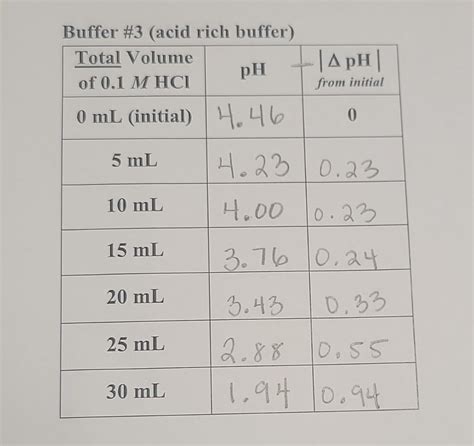 Buffer #3 (acid rich buffer)
Total Volume of 0.1 M HCl | pH | |Δ pH| from initial
0 mL (initial) | 4.46 | 0
5 mL | 4.23 | 0.23
10 mL | 4.00 | 0.23
15 mL | 3.76 | 0.24
20 mL | 3.43 | 0.33
25 mL | 2.88 | 0.55
30 mL | 1.94 | 0.94